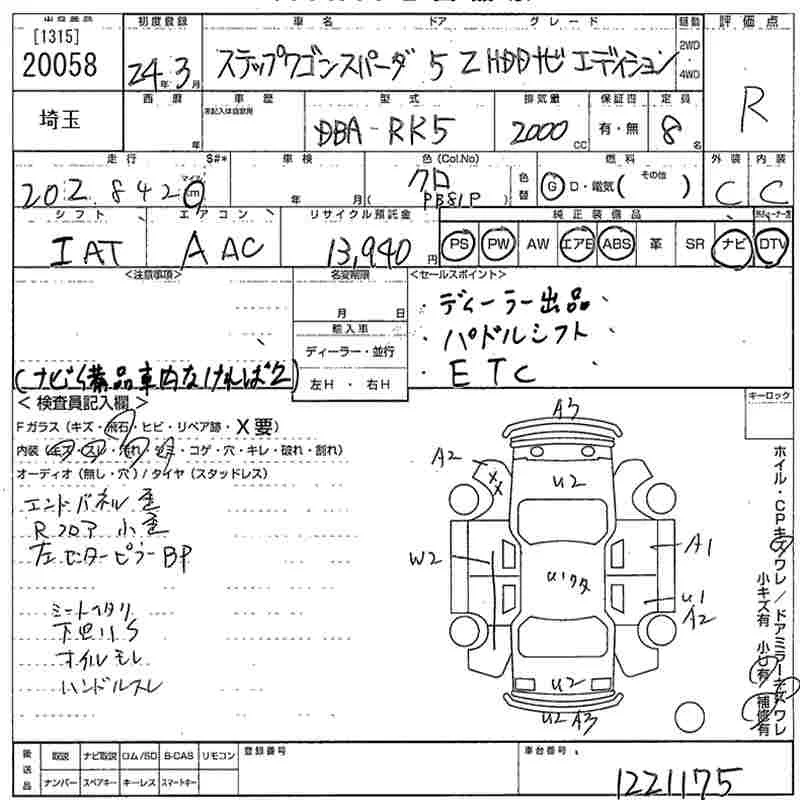 出品番号 初度登録 車名 ドア グレード 駆動 評価点
[1315]
20058 24年3月 ステップワゴンスパーダ 5 Z HDDナビ エディション 2WD・4WD R
埼玉 西暦 年 車歴 型式 DBA-RK5 排気量 2000cc 保証書 有・無 定員 8名
走行 車検 色(Col.No) 燃料 外装 内装
202842km 年 月 クロ PB81P 色替 G D・電気( その他 ) C C
シフト エアコン リサイクル預託金 純正装備品
IAT AAC 13,940円 PS PW AW エアB ABS 革 SR ナビ DTV
<注意事項> 名変期限 <セールスポイント>
月 日
・ディーラー出品、
輸入車
・パドルシフト
ディーラー・並行
・ETC
左H・右H
(ナビ備品車内なければ2)
<検査員記入欄> キーロック
Fガラス(キズ・飛石・ヒビ・リペア跡・X要)
内装(キズ・スレ・汚れ・シミ・コゲ・穴・キレ・破れ・割れ)
オーディオ(無し・穴)/タイヤ(スタッドレス)
エンドパネル歪
Rフロア小歪
左センターピラーBP
シートヘタリ
下回りS
オイルモレ
ハンドルスレ
A3
A2 XX U2
W2 A1
U1 A2
U2
U2 A3
ホイル・CPキズワレ/ドアミラーキズワレ
小キズ有 小U有 補修有
後送品 取説 ナビ取説 ロム/SD B-CAS リモコン 登録番号 車台番号
ナンバー スペアキー キーレス スマートキー 1221175